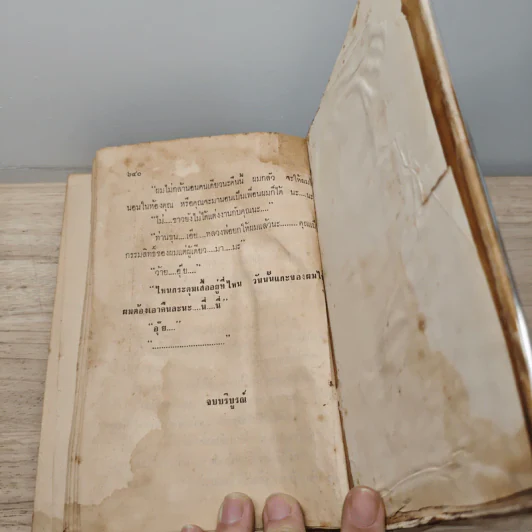 ๖๔๐
"ผมไม่กล้านอนคนเดียวนะคืนนี้ ผมกลัว จะให้ผมไป
นอนในห้องคุณ หรือคุณจะมานอนเป็นเพื่อนผมก็ได้ นะ....นะ
"ไม่....ชาวยังไม่ได้แต่งงานกับคุณนะ...."
"ท่านขุน....เอ๊ย....หลวงพ่อยกให้ผมแล้วนะ........ คุณเป็น
กรรมสิทธิ์ของผมแต่ผู้เดียว....มา....มะ"
"ว้าย....อุ๊ย...."
"ไหนกระดุมเสื้ออยู่ที่ไหน วันนั้นและของผมไ
ผมต้องเอาคืนละนะ....นี่....นี่"
"อุ๊ย...."
"..............................."
จบบริบูรณ์